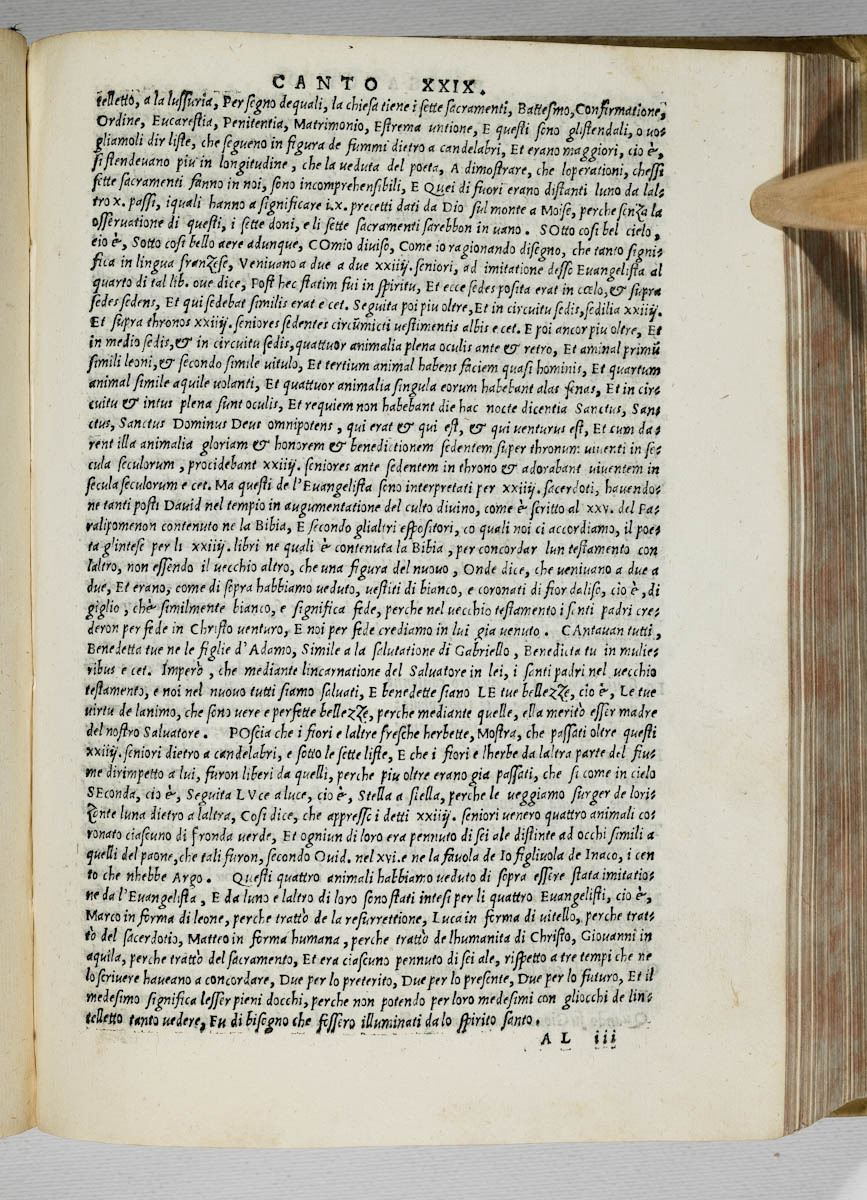 CANTO XXIX.
telletto, a la lussuria, Per segno de quali, la chiesa tiene i sette sacramenti, Battesmo, Confirmatione,
Ordine, Eucarestia, Penitentia, Matrimonio, Estrema untione, E questi sono gli stendali, o vo=
gliamoli dir liste, che segueno in figura de fummi dietro a candelabri, Et erano maggiori, cio è,
si stendevano piu in longitudine, che la veduta del poeta, A dimostrare, che loperationi, chessi
sette sacramenti fanno in noi, sono incomprehensibili, E QVei di fuori erano distanti luno da lal=
tro x. passi, iquali hanno a significare i.x. precetti dati da Dio sul monte a Moise, perche senza la
osservatione di questi, i sette doni, e li sette sacramenti sarebbon in vano. SOtto cosi bel cielo,
cio è, Sotto cosi bello aere adunque, COmio diviso, Come io ragionando disegno, che tanto signi=
fica in lingua franzese, Venivano a due a due xxiiij. seniori, ad imitatione desso Evangelista al
quarto di tal lib. ove dice, Post hec statim fui in spiritu, Et ecce sedes posita erat in cœlo, & supra
sedes sedens, Et qui sedebat similis erat e cet. Seguita poi piu oltre, Et in circuitu sedis, sedilia xxiiij.
Et supra thronos xxiiij. seniores sedentes circũmicti vestimentis albis e cet. E poi ancor piu oltre, Et
in medio sedis, & in circuitu sedis, quattuor animalia plena oculis ante & retro, Et aminal primũ
simili leoni, & secondo simile vitulo, Et tertium animal habens faciem quasi hominis, Et quartum
animal simile aquile volanti, Et quattuor animalia singula eorum habebant alas senas, Et in cir=
cuitu & intus plena sunt oculis, Et requiem non habebant die hac nocte dicentia Sanctus, San=
ctus, Sanctus Dominus Deus omnipotens, qui erat & qui est, & qui venturus est, Et cum da=
rent illa animalia gloriam & honorem & benedictionem sedentem super thronum viventi in se=
cula seculorum, procidebant xxiiij. seniores ante sedentem in throno & adorabant viventem in
secula seculorum e cet. Ma questi de l'Evangelista sono interpretati per xxiiij. sacerdoti, havendo=
ne tanti posti David nel tempio in augumentatione del culto divino, come è scritto al xxv. del Pa=
ralipomenon contenuto ne la Bibia, E secondo glialtri espositori, co quali noi ci accordiamo, il poe=
ta glintese per li xxiiij. libri ne quali è contenuta la Bibia, per concordar lun testamento con
laltro, non essendo il vecchio altro, che una figura del nuovo, Onde dice, che venivano a due a
due, Et erano, come di sopra habbiamo veduto, vestiti di bianco, e coronati di fior daliso, cio è, di
giglio, chè similmente bianco, e significa fede, perche nel vecchio testamento i santi padri cre=
deron per fede in Christo venturo, E noi per fede crediamo in lui gia venuto. CAntavan tutti,
Benedetta tue ne le figlie d'Adamo, Simile a la salutatione di Gabriello, Benedicta tu in mulie=
ribus e cet. Imperò, che mediante lincarnatione del Salvatore in lei, i santi padri nel vecchio
testamento, e noi nel nuovo tutti siamo salvati, E benedette siano LE tue bellezze, cio è, Le tue
virtu de lanimo, che sono vere e perfette bellezze, perche mediante quelle, ella meritò esser madre
del nostro Salvatore. POscia che i fiori e laltre fresche herbette, Mostra, che passati oltre questi
xxiiij. seniori dietro a candelabri, e sotto le sette liste, E che i fiori e lherbe da laltra parte del fiu=
me dirimpetto a lui, furon liberi da quelli, perche piu oltre erano gia passati, che si come in cielo
SEconda, cio è, Seguita LVce a luce, cio è, Stella a stella, perche le veggiamo surger de lori=
zonte luna dietro a laltra, Cosi dice, che appresso i detti xxiiij. seniori venero quattro animali co=
ronato ciascuno di fronda verde, Et ogniun di loro era pennuto di sei ale distinte ad occhi simili a
quelli del paone, che tali furon, secondo Ovid. nel xvi. e ne la favola de Io figlivola de Inaco, i cen
to che nhebbe Argo. Questi quattro animali habbiamo veduto di sopra essere stata imitatio=
ne da l'Evangelista, E da luno e laltro di loro sono stati intesi per li quattro Evangelisti, cio è,
Marco in forma di leone, perche trattò de la resurrettione, Luca in forma di vitello, perche trat=
tò del sacerdotio, Matteo in forma humana, perche trattò de lhumanita di Christo, Giovanni in
aquila, perche trattò del sacramento, Et era ciascuno pennuto di sei ale, rispetto a tre tempi che ne
lo scrivere haveano a concordare, Due per lo preterito, Due per lo presente, Due per lo futuro, Et il
medesimo significa lesser pieni docchi, perche non potendo per loro medesimi con gliocchi de lin=
telletto tanto vedere, Fu di bisogno che fossero illuminati da lo spirito santo.
AL iii